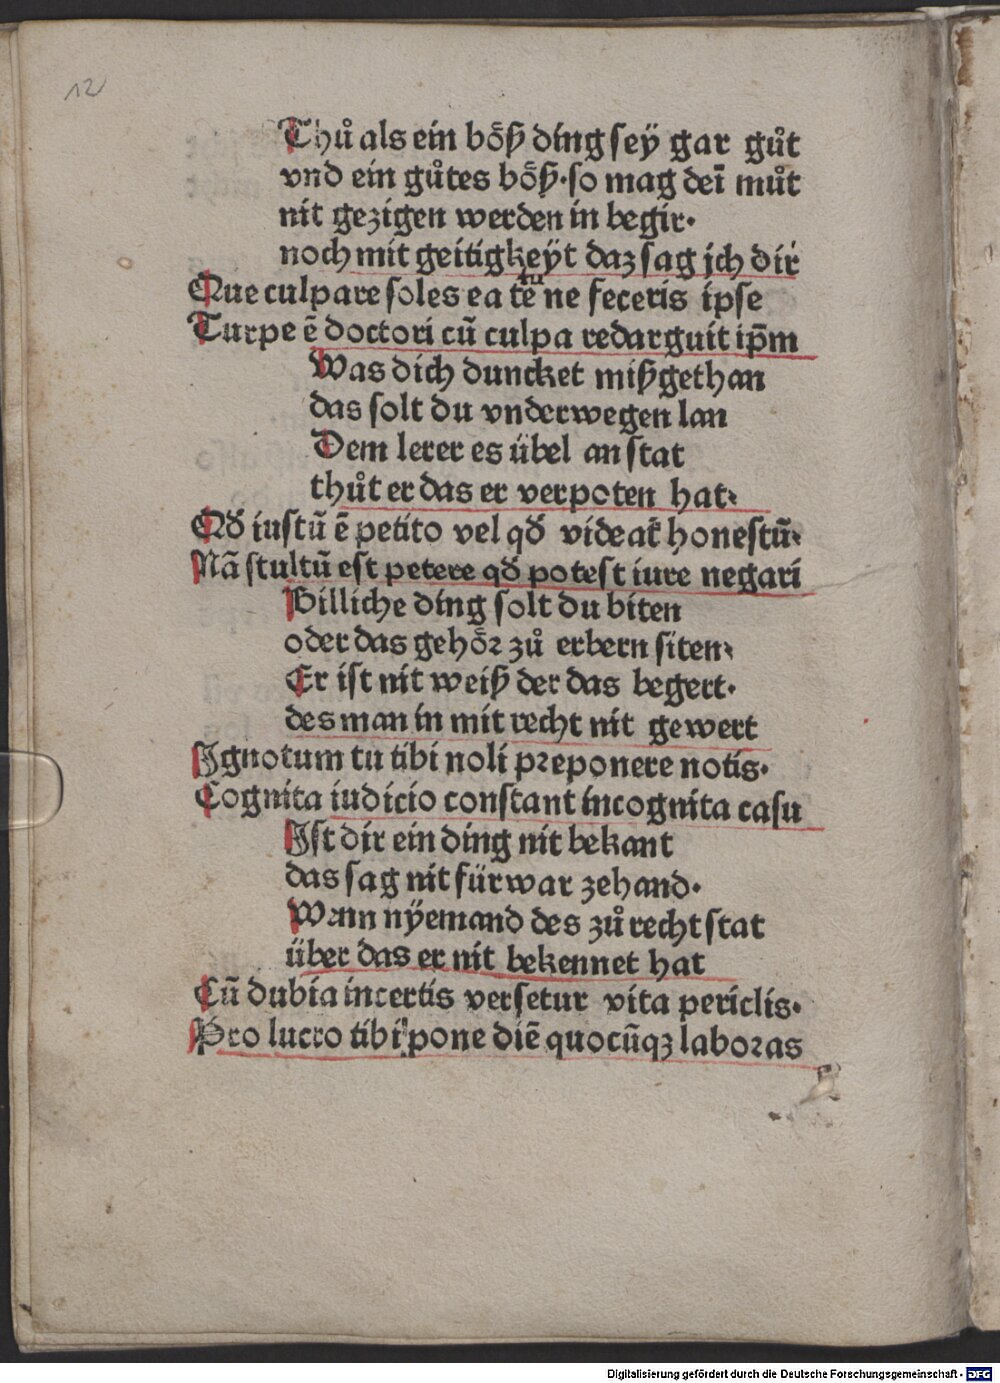 12
Thů als ein bo̊ß ding sey gar gůt
vnd ein gůtes bo̊ß·so mag deī můt
nit gezigen werden in begir·
noch mit geitigkeÿt daz sag jch dir
Que culpare soles ea te tu ne feceris ipse
Turpe ē doctori cū culpa redarguit ip̄m
Was dich duncket mißgethan
das solt du vnderwegen lan
Dem lerer es übel an stat
thůt er das er verpoten hat·
Qď iustū ē petito vel qď videat̄ honestū·
Nā stultū est petere qď potest iure negari
Billiche ding solt du biten
oder das gehöꝛ zů erbern siten·
Er ist nit weiß der das begert·
des man in mit recht nit gewert
Ignotum tu tibi noli pꝛeponere notis·
Cognita iudicio constant incognita casu
Ist dir ein ding nit bekant
das sag nit für war zehand·
Wann nÿemand des zů recht stat
über das er nit bekennet hat
Cū dubia incertis versetur vita periclis·
Pro lucro tibi pone diē quocūqꝫ laboꝛas
Digitalisierung gefördert durch die Deutsche Forschungsgemeinschaft - DFG